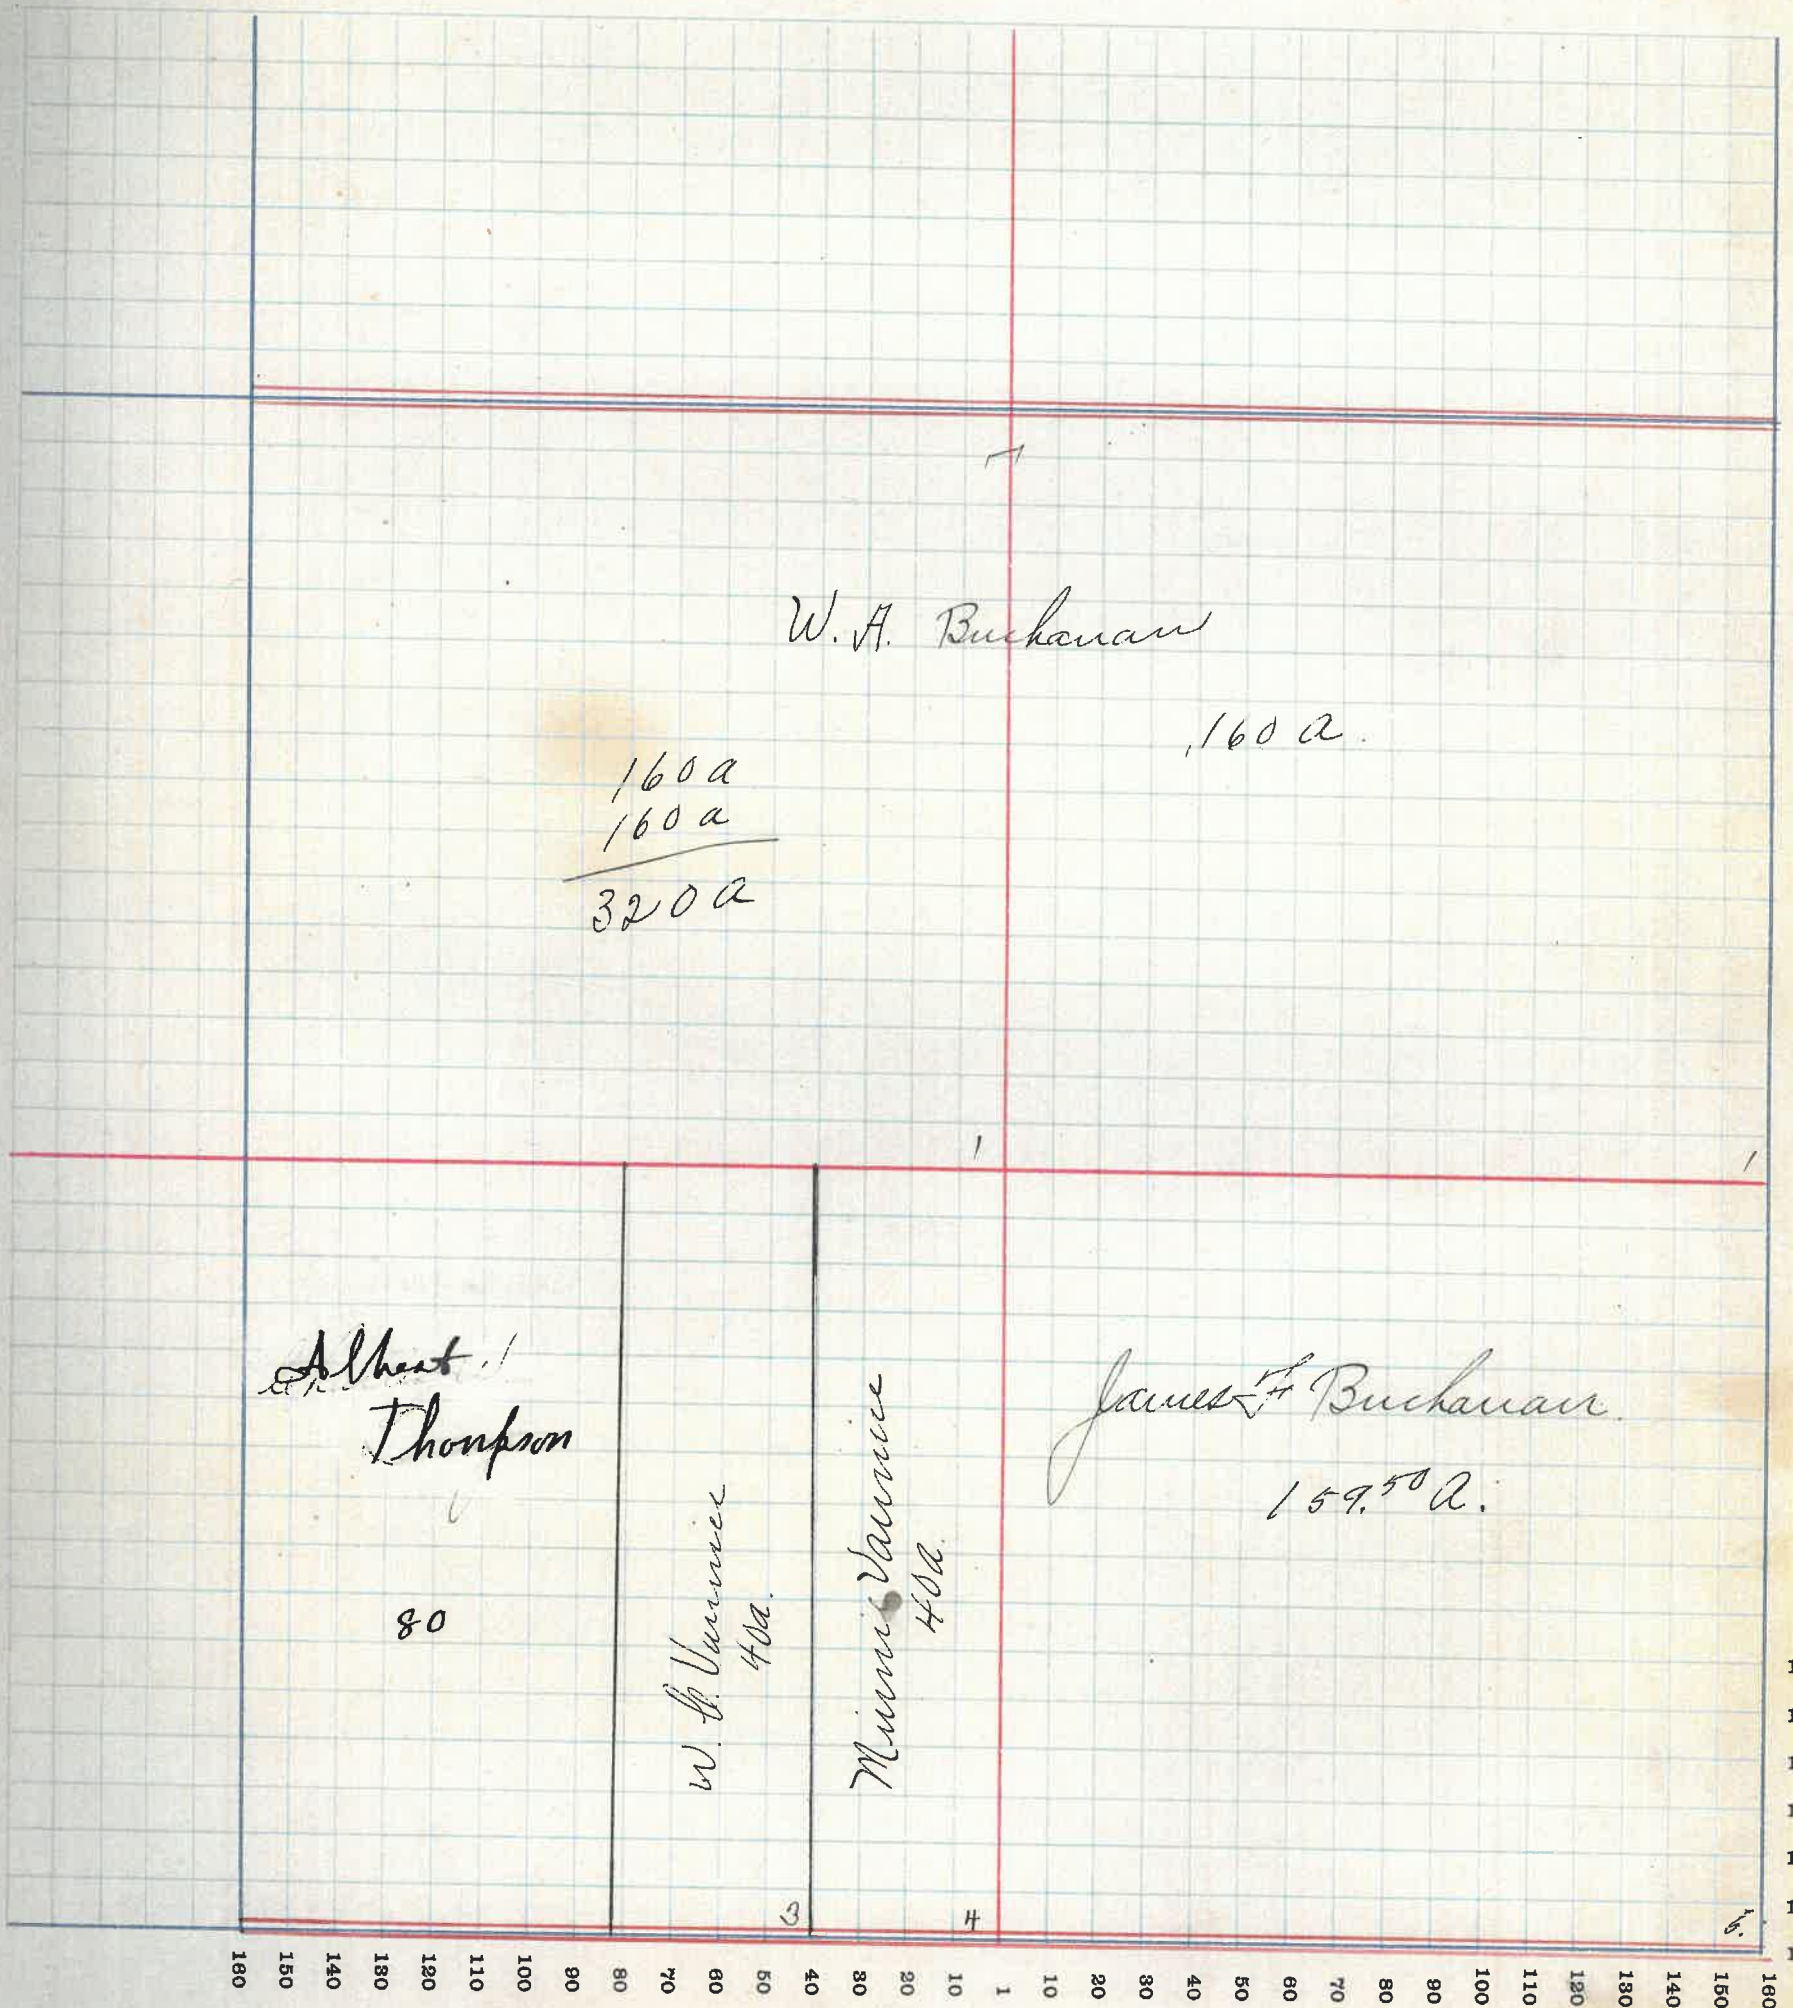 W. A. Buchanan
160 a.
160 a
160 a
320 a
1
1
Albert
Thompson
80
W. Vannice
40a.
Minnie Vannice
40a.
James F Buchanan.
159.50 a.
3
4
160 150 140 130 120 110 100 90 80 70 60 50 40 30 20 10 1 10 20 30 40 50 60 70 80 90 100 110 120 130 140 150 160